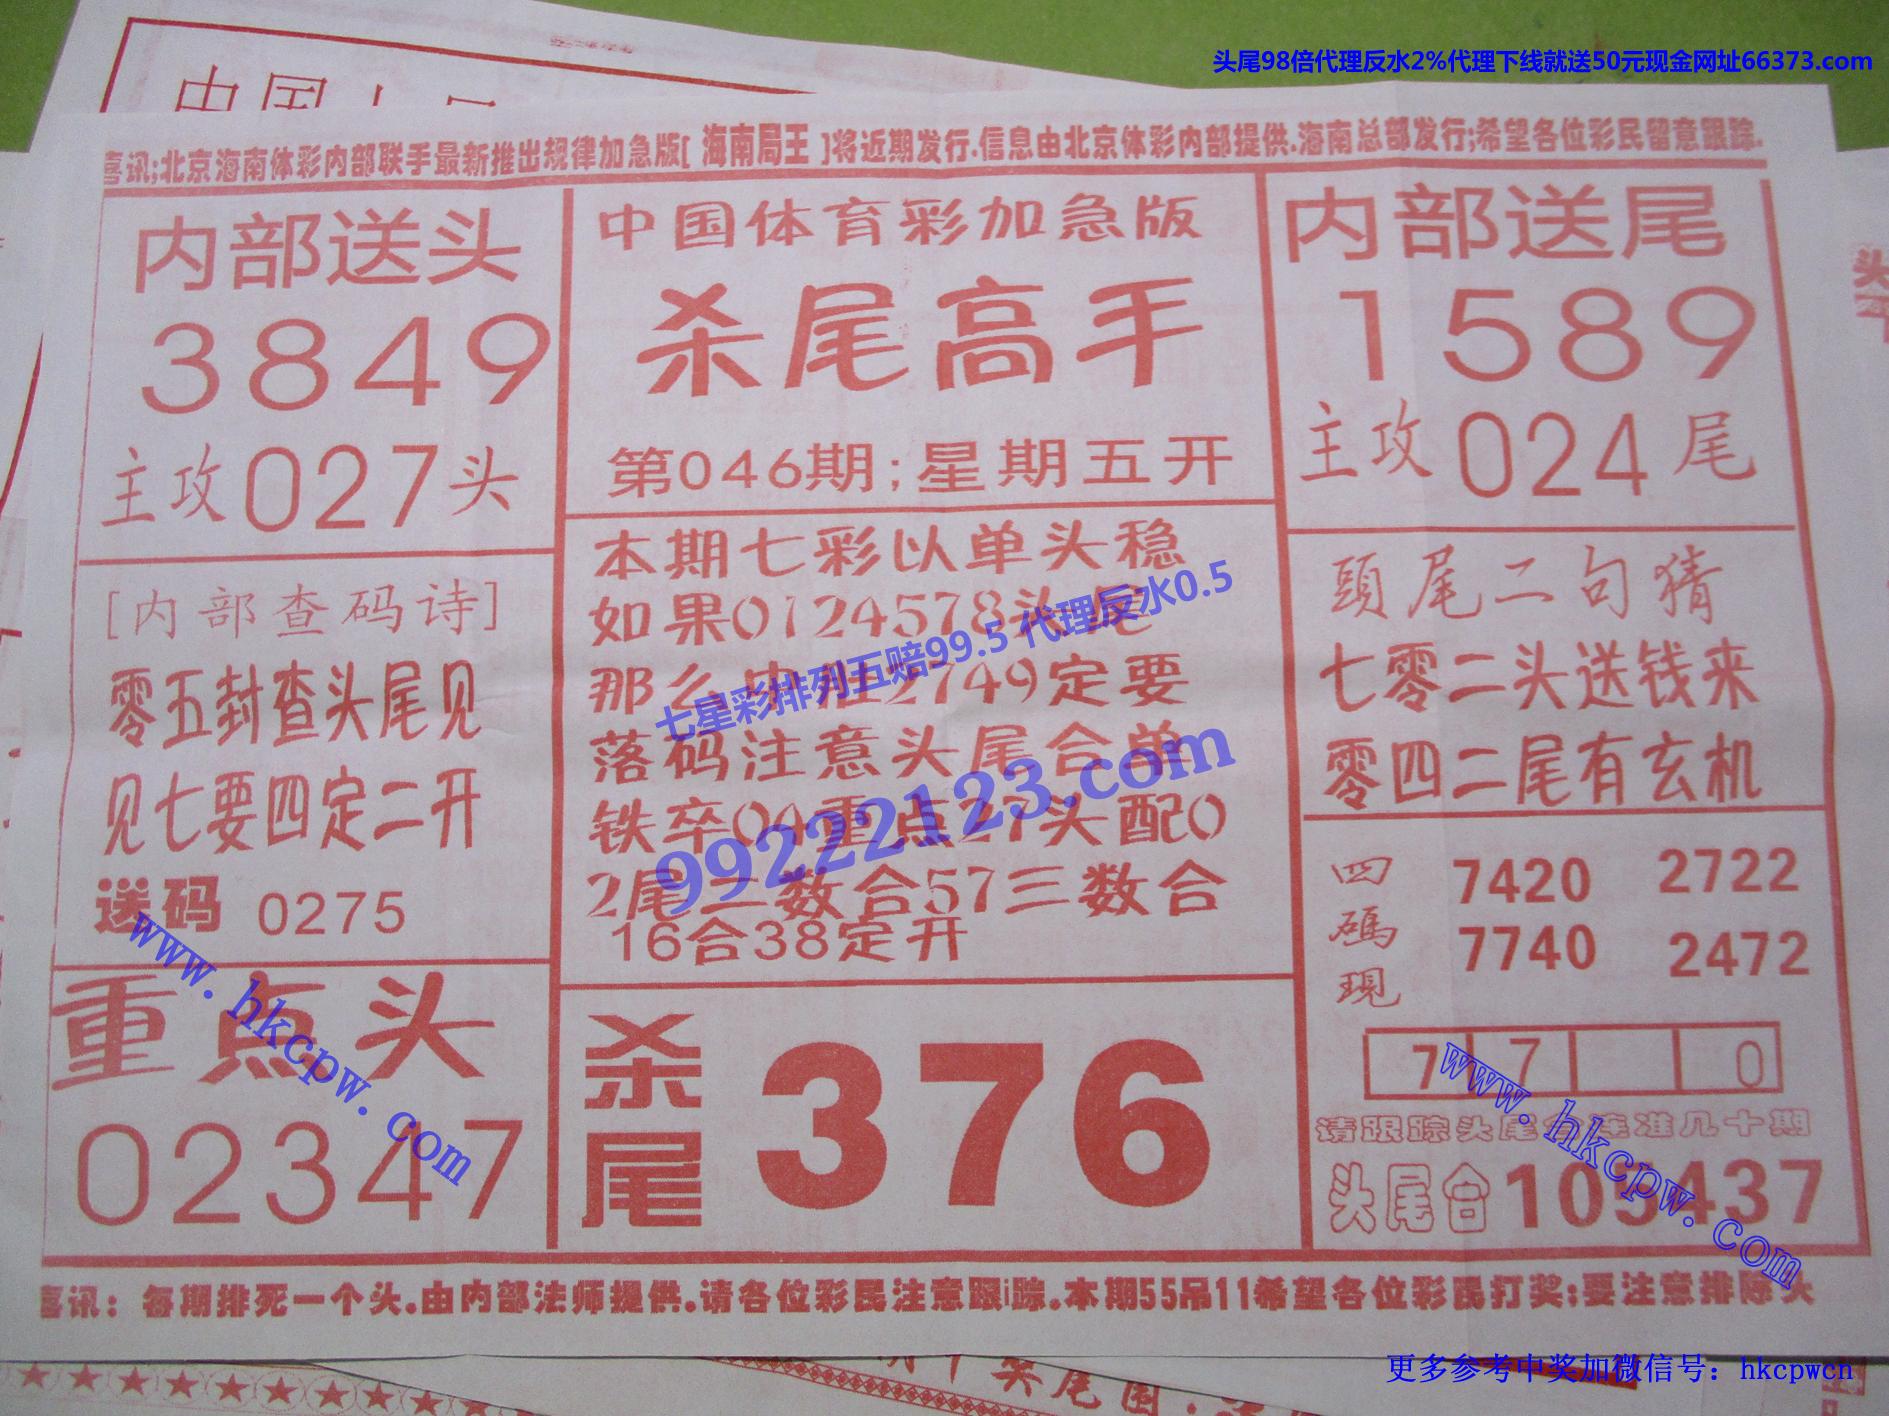 头尾98倍代理反水2%代理下线就送50元现金网址66373.com
喜讯;北京海南体彩内部联手最新推出规律加急版[ 海南局王 ]将近期发行.信息由北京体彩内部提供.海南总部发行;希望各位彩民留意跟踪.
内部送头
3849
主攻027头
[内部查码诗]
零五封查头尾见
见七要四定二开
送码 0275
重点头
02347
中国体育彩加急版
杀尾高手
第046期;星期五开
本期七彩以单头稳
如果0124578头尾
那么 2749定要
落码注意头尾合单
铁卒04重点27头配0
2尾二数合57三数合
16合38定开
杀尾 376
内部送尾
1589
主攻024尾
頭尾二句猜
七零二头送钱来
零四二尾有玄机
四碼現
7420 2722
7740 2472
7 7 0
请跟踪头尾合连准几十期
头尾合105437
喜讯：每期排死一个头.由内部法师提供.请各位彩民注意跟踪.本期55吊11希望各位彩民打奖;要注意排除头
七星彩排列五赔99.5 代理反水0.5
99222123.com
www.hkcpw.com
www.hkcpw.com
更多参考中奖加微信号：hkcpwcn